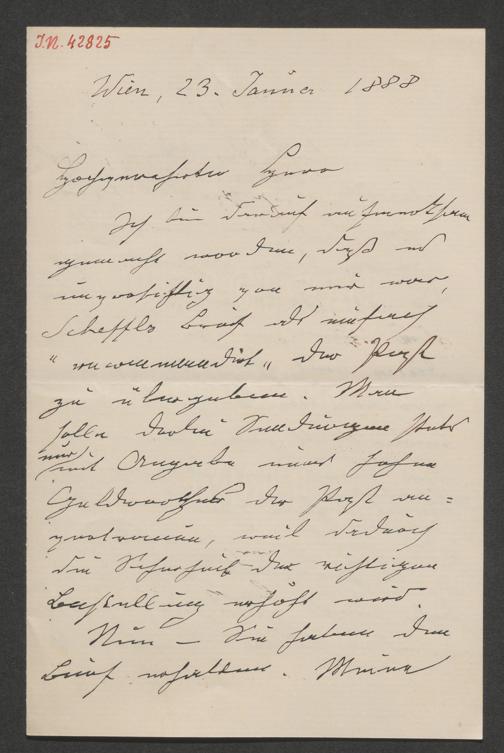 I.N. 42825
Wien, 23. Jänner 1888
Hochgeehrter Herr
Ich bin darauf aufmerksam
gemacht worden, daß es
unvorsichtig von mir war,
Scheffls Brief als einfach
"recommandirt" der Post
zu übergeben. Man
solle derlei Sendungen stets
nur mit Angabe eines hohen
Geldwerthes der Post an=
vertrauen, weil dadurch
die Sicherheit der richtigen
Bestellung erhöht wird.
Nun — Sie haben den
Brief erhalten. Meine